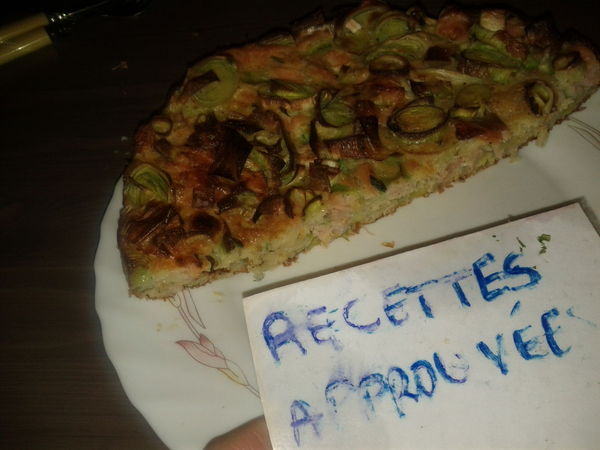 RECETTES
APPROUVÉE